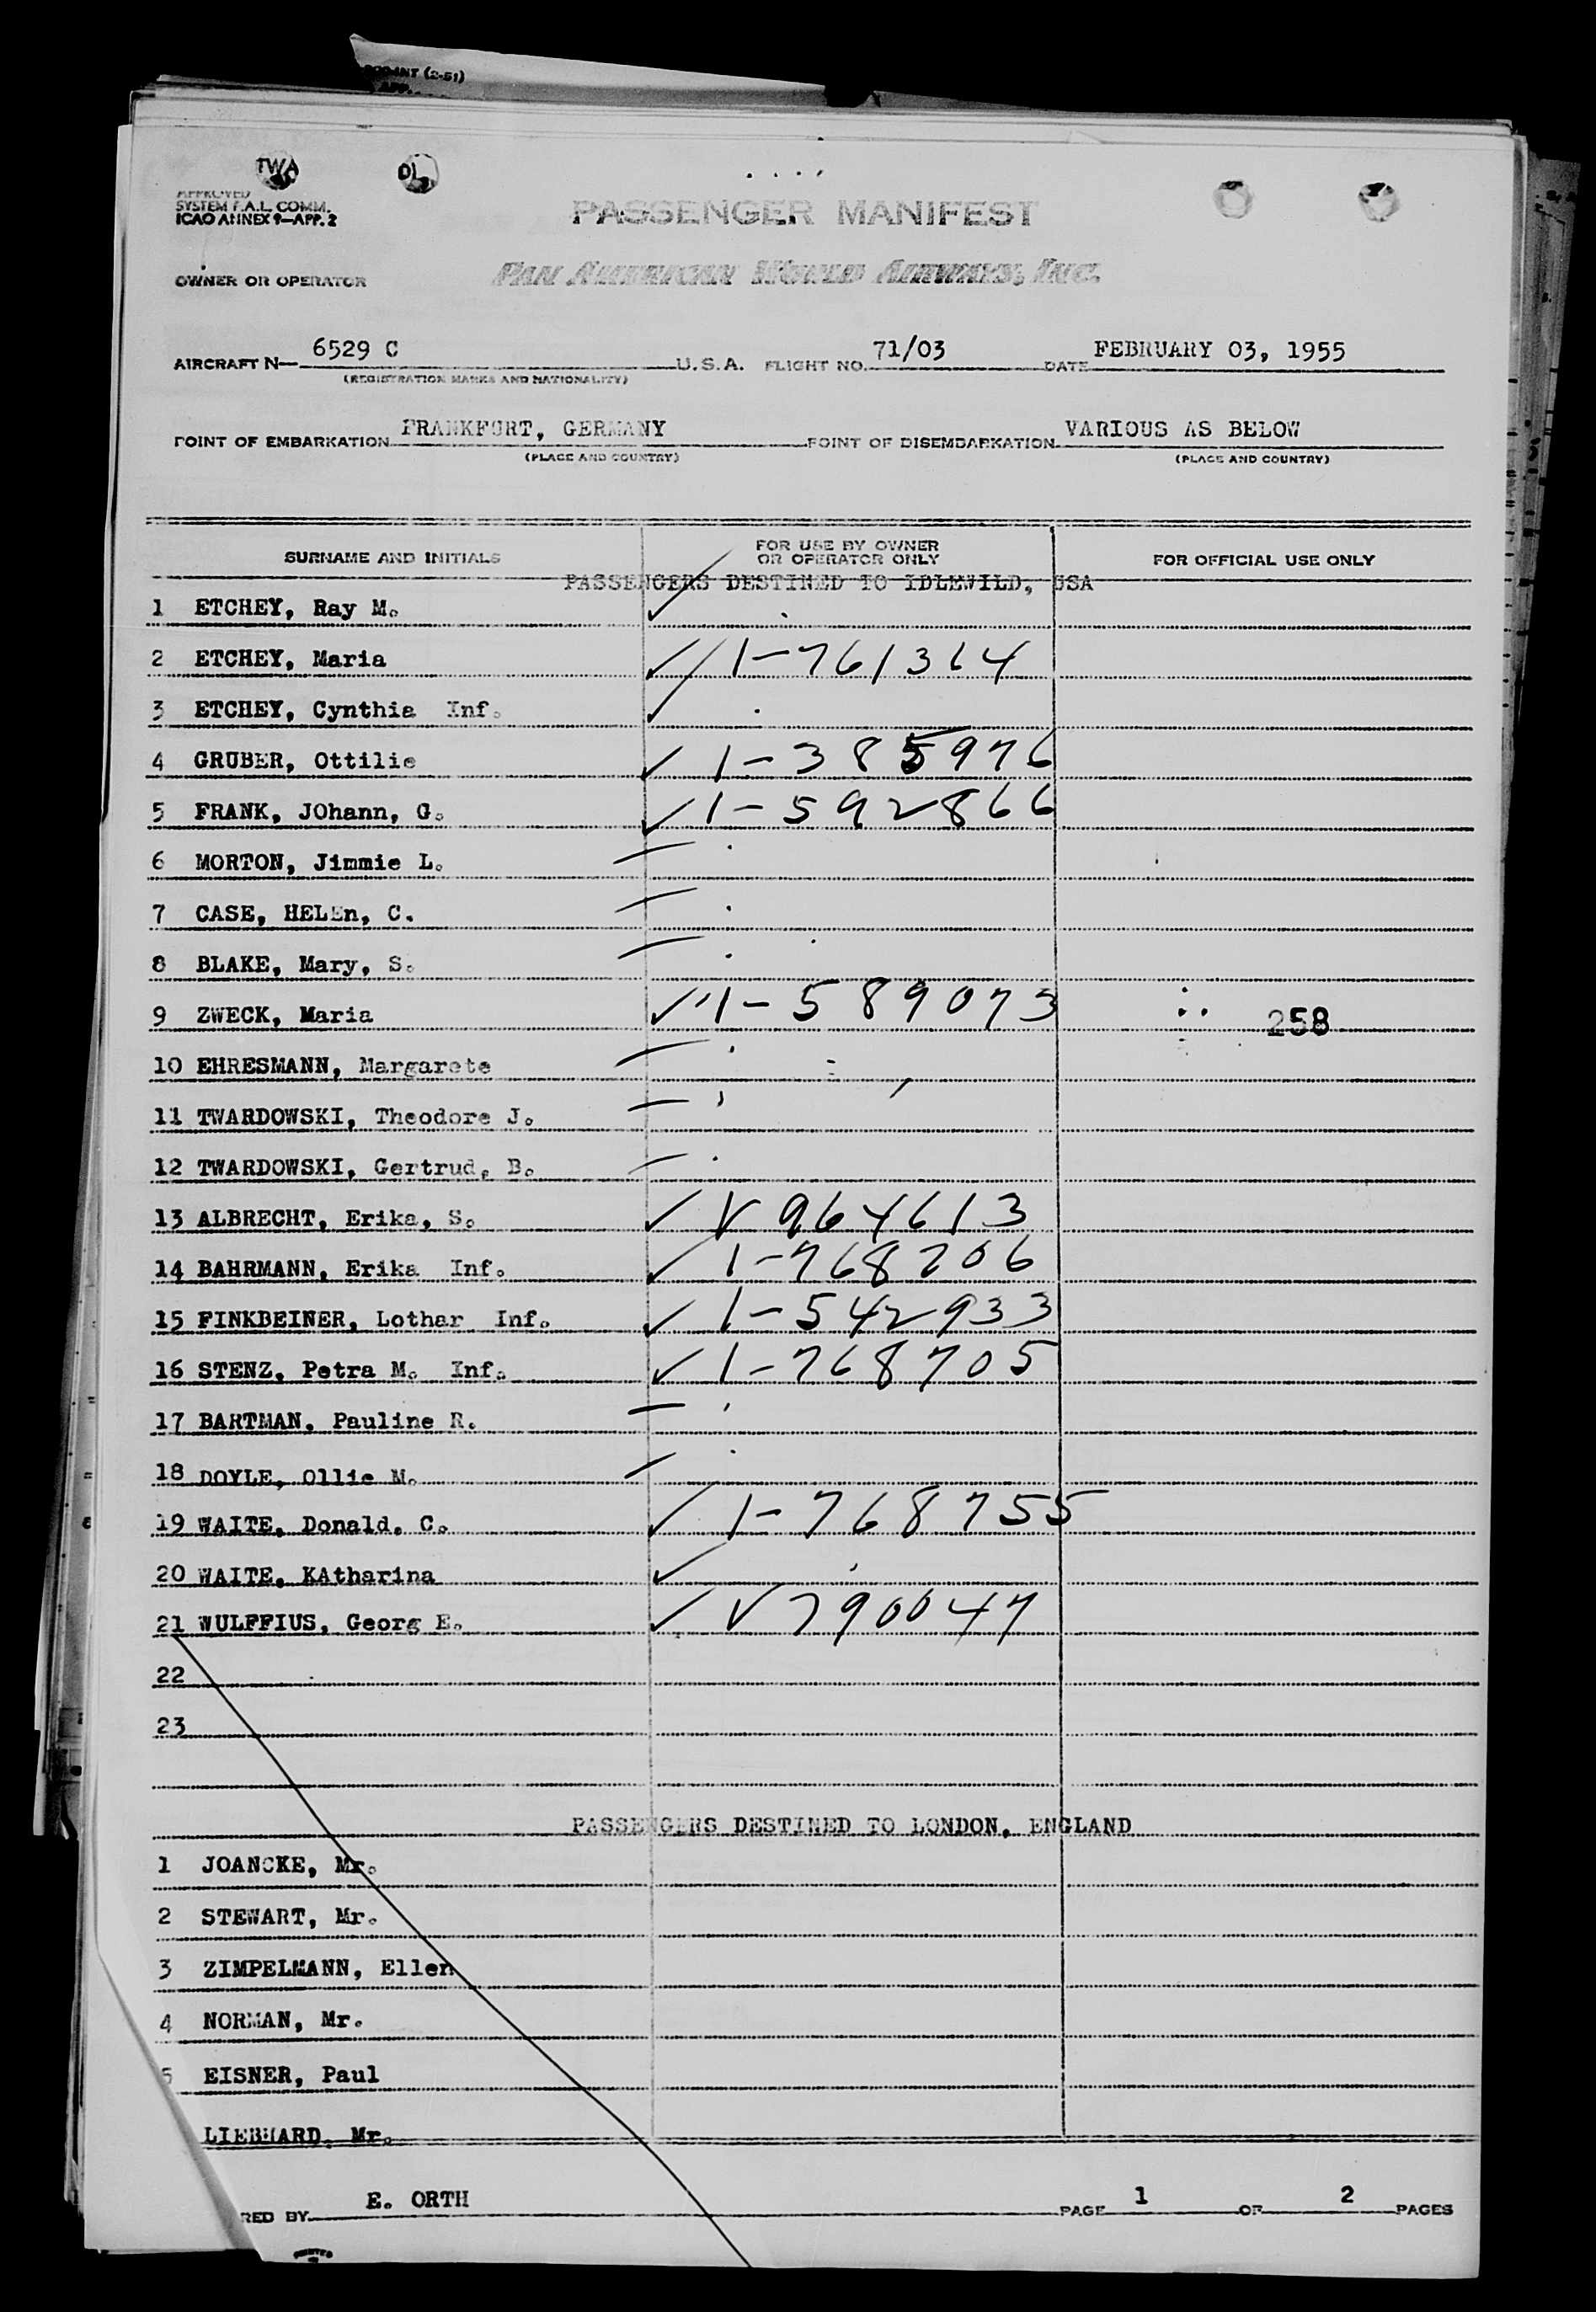 TWA
DL
APPROVED
SYSTEM F.A.L. COMM.
ICAO ANNEX 9—APP. 2
PASSENGER MANIFEST
OWNER OR OPERATOR PAN AMERICAN WORLD AIRWAYS, INC.
AIRCRAFT N— 6529 C U.S.A. FLIGHT NO. 71/03 DATE FEBRUARY 03, 1955
(REGISTRATION MARKS AND NATIONALITY)
POINT OF EMBARKATION FRANKFORT, GERMANY POINT OF DISEMBARKATION VARIOUS AS BELOW
(PLACE AND COUNTRY) (PLACE AND COUNTRY)
SURNAME AND INITIALS FOR USE BY OWNER OR OPERATOR ONLY FOR OFFICIAL USE ONLY
PASSENGERS DESTINED TO IDLEWILD, USA
1 ETCHEY, Ray M. ✓
2 ETCHEY, Maria ✓ 1-761314
3 ETCHEY, Cynthia Inf. ✓
4 GRUBER, Ottilie ✓ 1-385976
5 FRANK, JOhann, G. ✓ 1-592866
6 MORTON, Jimmie L. —
7 CASE, HELEn, C. —
8 BLAKE, Mary, S. —
9 ZWECK, Maria ✓ 1-589073 258
10 EHRESMANN, Margarete —
11 TWARDOWSKI, Theodore J. —
12 TWARDOWSKI, Gertrud, B. —
13 ALBRECHT, Erika, S. ✓ V 964613
14 BAHRMANN, Erika Inf. ✓ 1-768206
15 FINKBEINER, Lothar Inf. ✓ 1-542933
16 STENZ, Petra M. Inf. ✓ 1-768705
17 BARTMAN, Pauline R. —
18 DOYLE, Ollie M. —
19 WAITE, Donald, C. ✓ 1-768755
20 WAITE, KAtharina ✓
21 WULFFIUS, Georg E. ✓ V 790047
22
23
PASSENGERS DESTINED TO LONDON, ENGLAND
1 JOANCKE, Mr.
2 STEWART, Mr.
3 ZIMPELMANN, Ellen
4 NORMAN, Mr.
5 EISNER, Paul
LIEBHARD, Mr.
RED BY E. ORTH PAGE 1 OF 2 PAGES